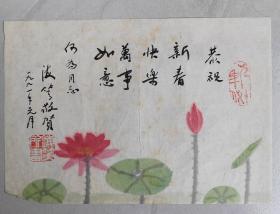 恭祝
新春
快樂
萬事
如意
何為同志
敬賀
一九八一年元月